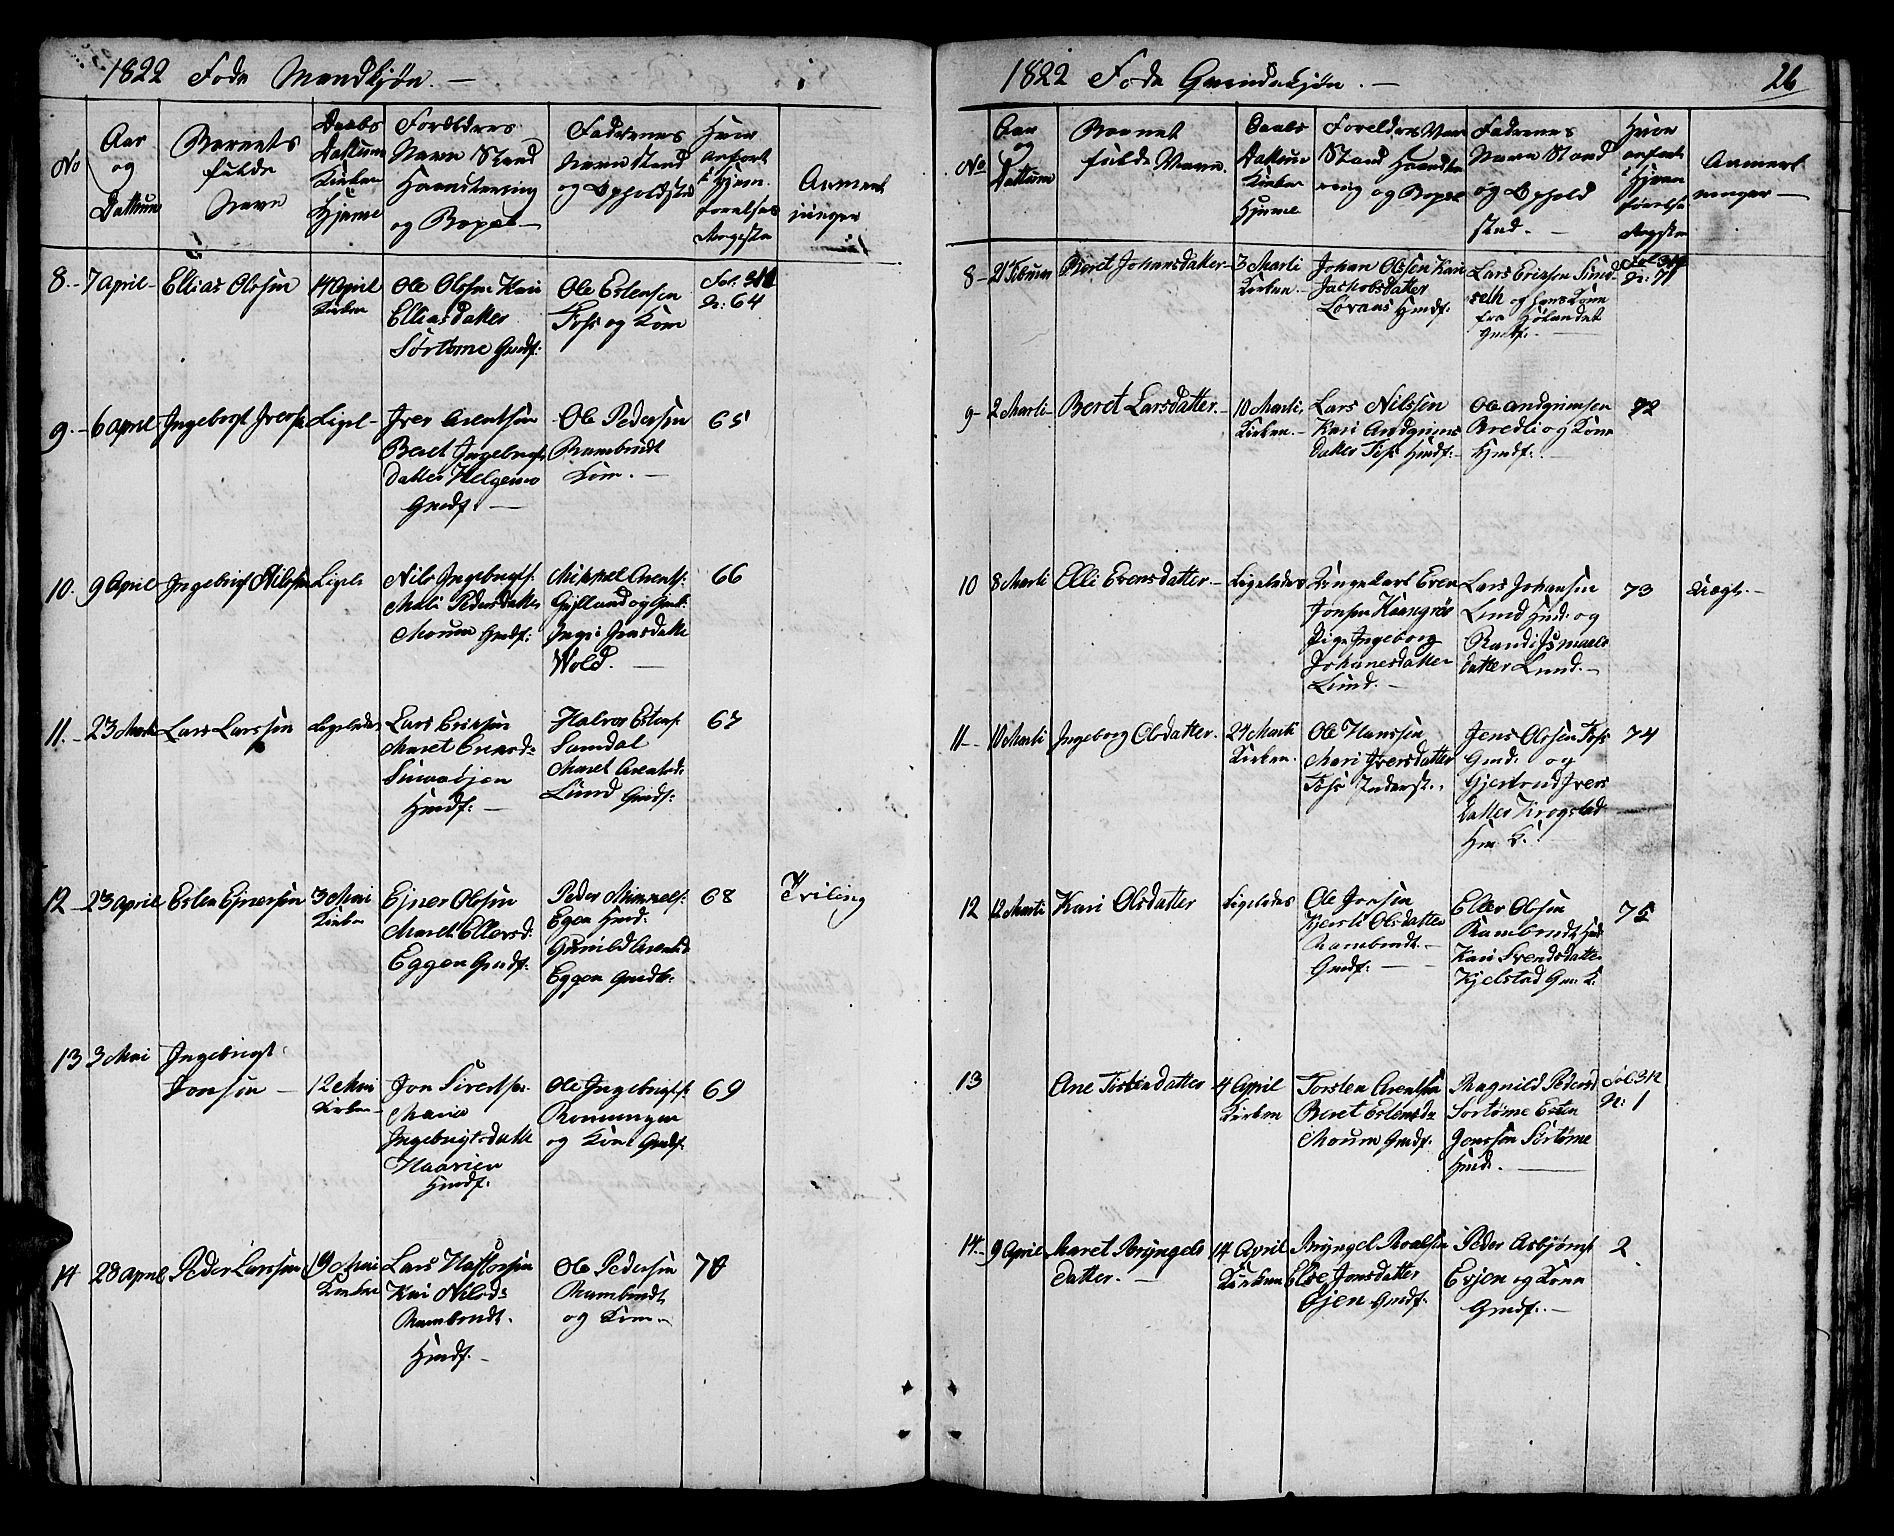 1822 Føde Mandkjøn. —
No
Aar
og
Dattum
Barnets
fulde
Navn
Daabs
Dattum
Kirken
Hjeme
Foreldres
Navn Stand
Haandtering
og Bopæl —
Faderenes
Navn Stand
og Opholdsted
Hvor
anført
i Hjem.
førelses
Regester
Anmerk
ninger
8. - 7 April -
Ellias Olssøn
14 April
Kirken
Ole Olssøn Kari
Elliasdatter
Sørtøme Gmdf:
Ole Estensen
Foss og Kone
Fol. 311
N: 64
9. - 6 April -
Ingebrigt Iverss.
Ligel -
Iver Arentsøn
Beret Ingebrigts
datter Helgemo
Gmdf. —
Ole Pedersøn
Rambradt
Kone. —
65
10. 9 April
Ingebrigt Nilssøn
Ligele
Nils Ingebrigts:
Mali Pedersdatter
Moum Gmdf:
Mikkel Arents:
Gylland og Gmk:
Ingri Jonsdatter
Wold. —
66
11. - 23 Marti
Lars Larssøn
Ligeledes
Lars Erikssøn
Maret Erensd:
Hmdf: —
Halvor Estens:
Samdal
Maret Arentsd:
Lund Gmdf:
67
12 23 April
Esten Ejnersøn
3 Mai
Kirken
Ejner Olssøn
Maret Ellersd:
Eggen Gmdf:
Peder Mikkels:
Egen Hmd:
Gunild Arentsd
Eggen Gmdk:
68
Triling
13 3 Mai
Ingebrigt
Jonsøn —
12 Mai
Kirken -
Jon Sivertsøn
Marie
Ingebrigtsdatter
Haarien
Hmdf:
Ole Ingebrigts:
Rønningen
og Kone Gmdf:
69
14 28 April
Peder Larssøn
19 Mai
Kirken
Lars Hattorsøn
Kari Nilsd:
Rambradt.
Hmdf. —
Ole Pedersøn
Rambradt
og Kone. -
70
1822 Føde Qvindekjøn. —
26
No
Aar
og
Dattum
Barnet
fulde Navn.
Daabs
Dattum
Kirken
Hjeme
Foreldres Navn
Stand Haandte
ring og Bopæl
Fadrenes
Navn Stand
og Ophold
sted. —
Hvor
anført
i Hjem
førelse
Regster
Anmerk
ninger —
8 - 21 Februar
Beret Johansdatter -
3 Marti
Kirken -
Johan Olssøn Kari
Jackobsdatter
Løvaas Hmdf:
Lars Erikssøn Sund
seth og hans Kone
fra Hølandet
Gmdf: —
Fol: 311
N: 71
9 - 2 Marti -
Beret Larsdatter. -
10 Marti,
Kirken. -
Lars Nilssøn
Kari Andgrims
datter Foss Hmdf: -
Ole Andgrimsen
Bredli og Kone
Hmdf: .
72
10 8 Marti
Elli Evensdatter. -
Ligeledes
Ungekarl Even
Jonsen Kaangrøe
Pige Ingeborg
Johanesdatter
Lund. —
Lars Johansen
Lund Hmd: og
Randi Ismaels
datter Lund. -
73
Uægt. —
11 - 10 Marti
Ingeborg Olsdatter. -
24 Marti
Kirken.
Ole Hanssen
Mari Iversdatter
Foss Inderst. .
Jens Olssen Foss
Gmd: og
Gjertrud Ivers
datter Krogstad
Hm. K.
74
12 12 Marti
Kari Olsdatter
Ligeledes
Ole Jonsen
Kjersti Olsdatter
Rambradt. -
Gmdf: —
Eller Olssøn
Rambradt Hmd
Kari Svendsdatter
Kjelstad Gm: K.
75
13
Ane Torstendatter
4 April
Kirken
Torsten Arentsøn
Beret Estensda
Moum Gmdf.
Ragnild Pedersd
Sørtøme Esten
Jonssøn Sørtøme
Hmd. —
Fol. 312
N: 1
14. - 9 April
Maret Bryngels
datter. -
14 April
Kirken
Bryngel Roalsen
Else Jonsdatter
Øjen Gmdf.
Peder Asbjørns
Evjen og Kone
Gmdf. . —
2